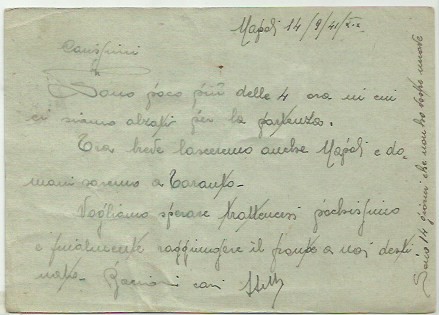 Napoli 14/9/41/XIX
Carissimi
Sono poco più delle 4 ora in cui
ci siamo alzati per la partenza.
Tra breve lasceremo anche Napoli e do-
mani saremo a Taranto.
Vogliamo sperare trattenersi pochissimo
e finalmente raggiungere il fronte a noi desti-
nato. Bacioni cari
Sono 14 giorni che non ho vostre nuove